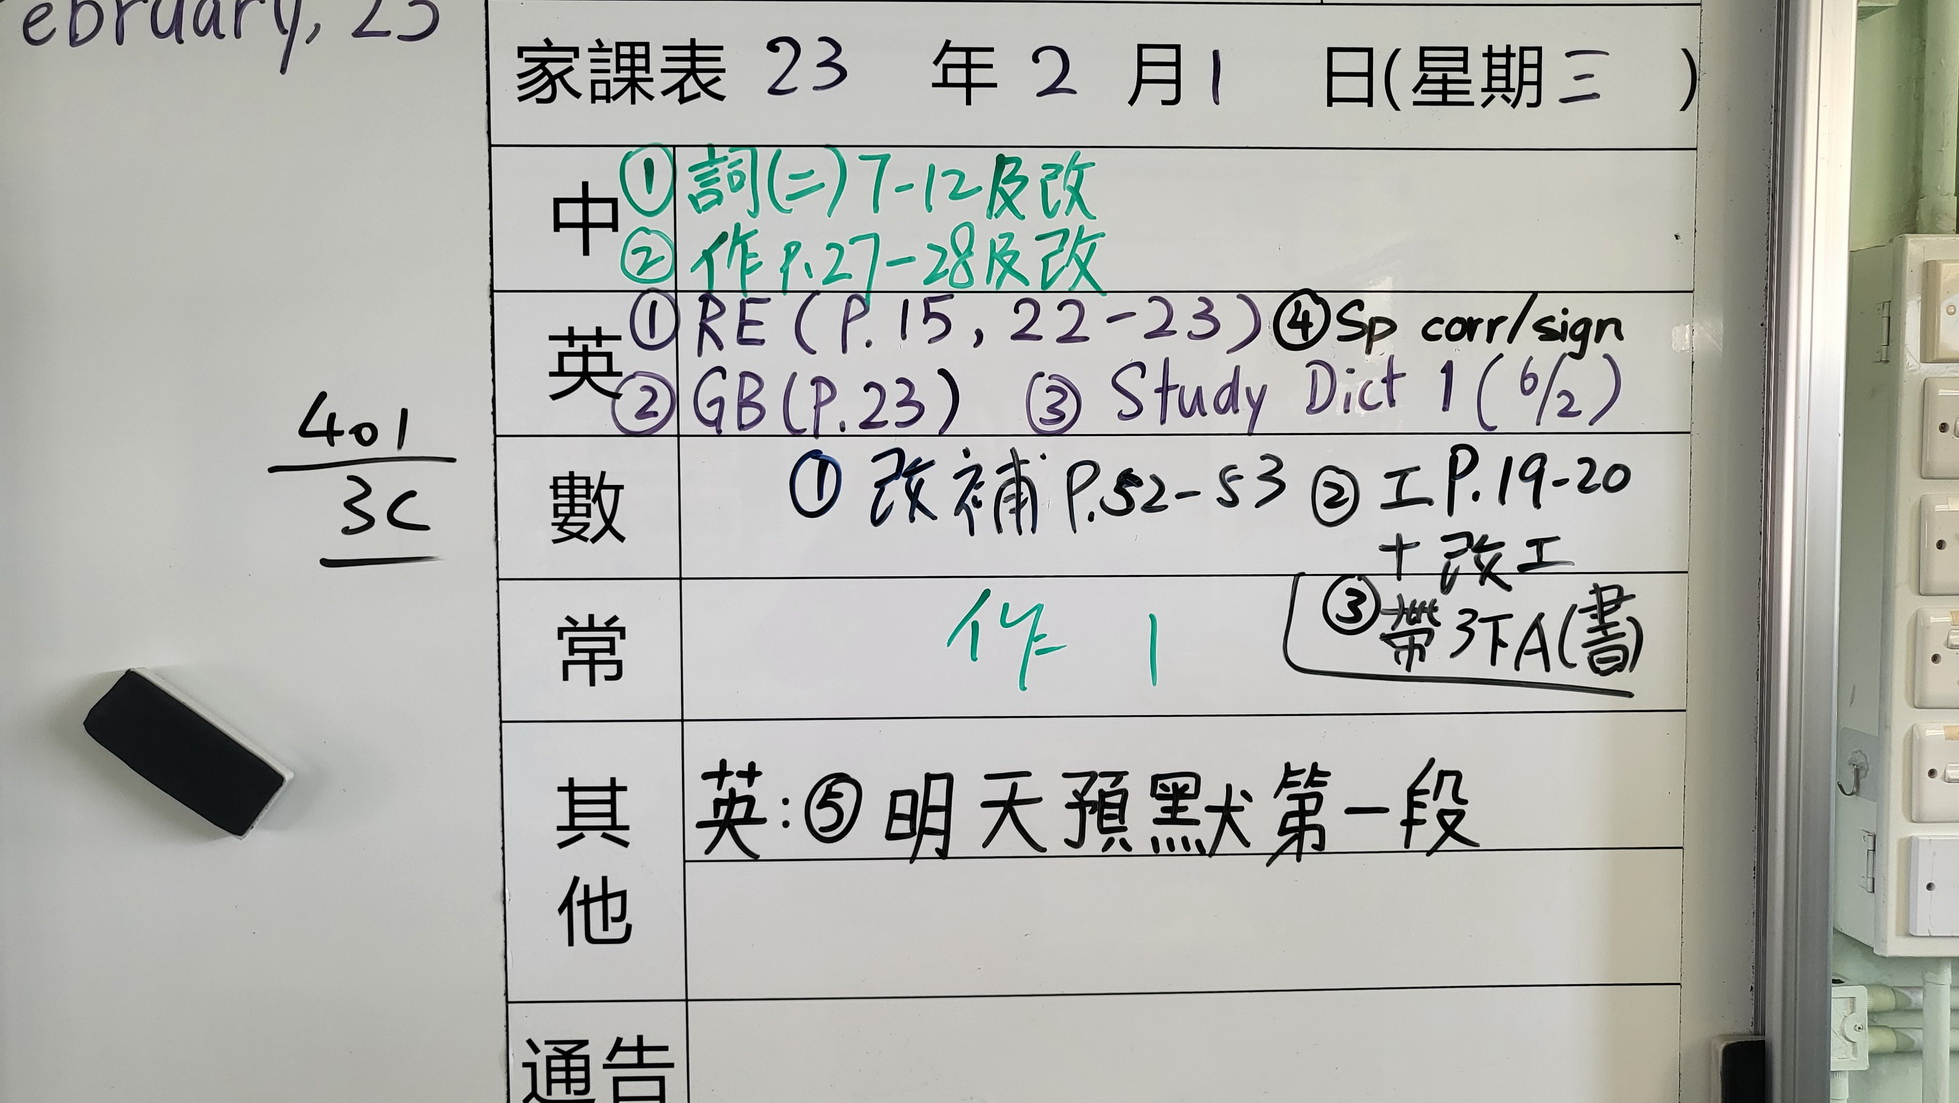 ebruary, 23
家課表 23 年 2 月 1 日(星期三 )
中 ① 詞(二) 7-12及改
② 作 P.27-28及改
英 ① RE (P.15, 22-23) ④ Sp corr/sign
② GB (P.23) ③ Study Dict 1 (6/2)
401
3C
數 ① 改補 P.52-53 ② 工 P.19-20
+ 改工
③ 帶3下A(書)
常 作 1
其他 英:⑤ 明天預默第一段
通告